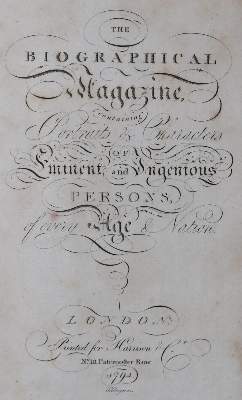 THE
BIOGRAPHICAL
Magazine,
containing
Portraits & Characters
OF
Eminent and Ingenious
PERSONS,
of every Age & Nation.
LONDON:
Printed for Harrison & Co.
No. 18, Paternoster Row
1794